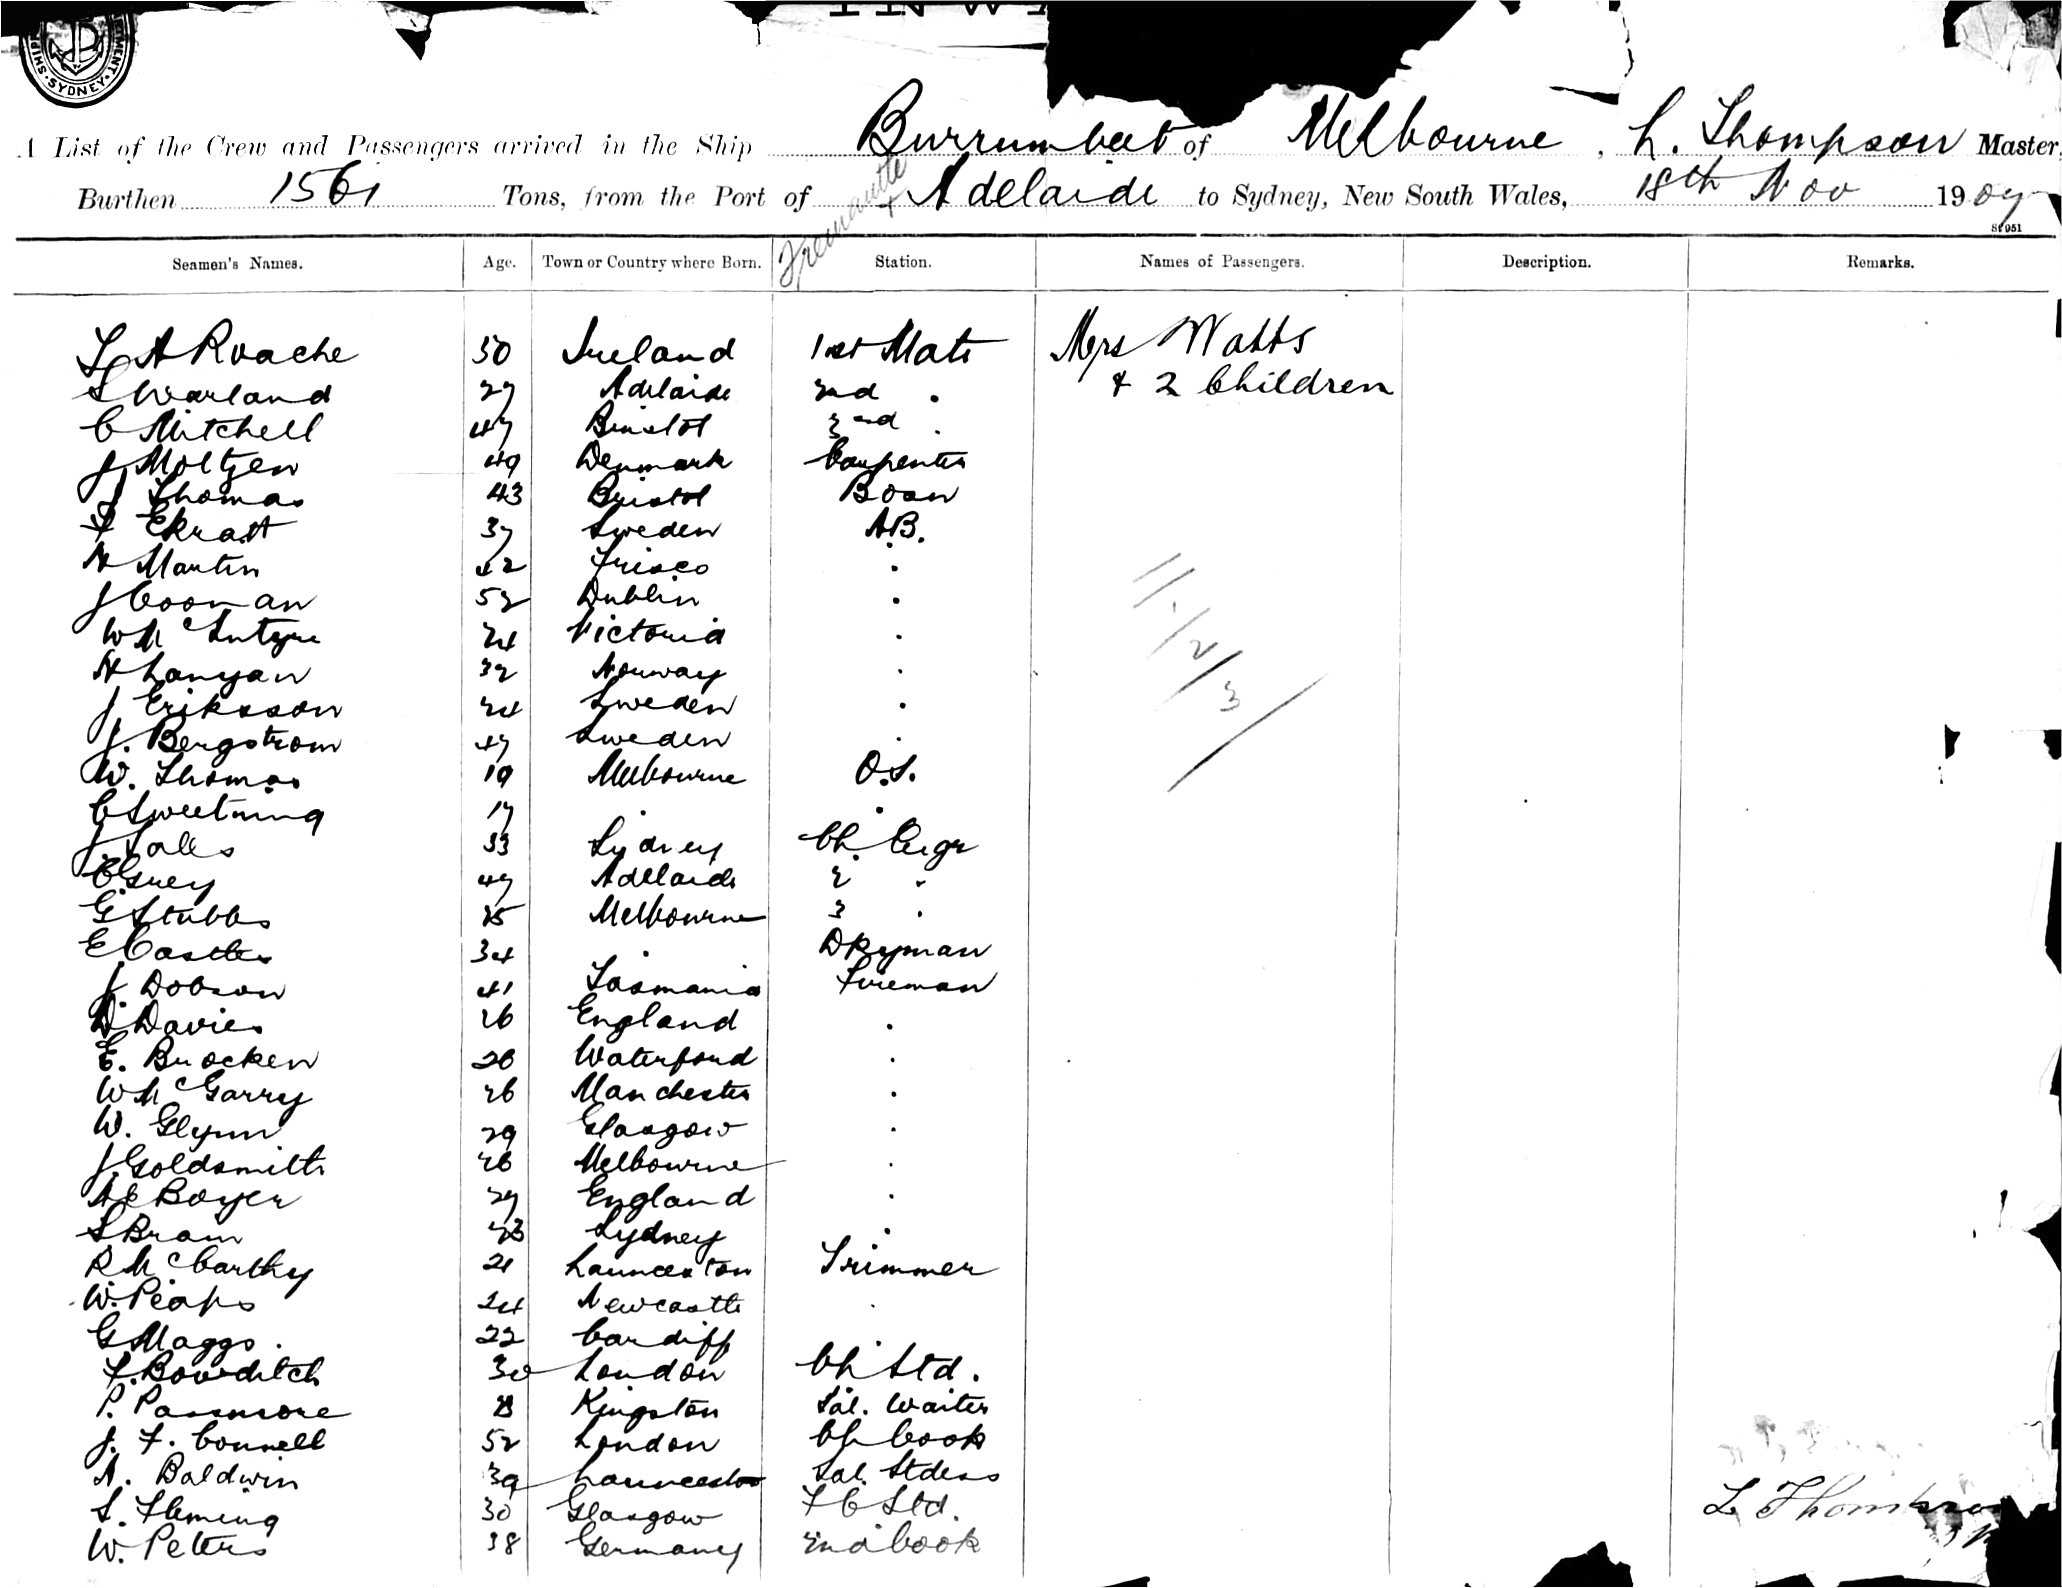 SYDNEY
A List of the Crew and Passengers arrived in the Ship Burrumbeet of Melbourne, L. Thompson Master,
Burthen 1561 Tons, from the Port of Fremantle + Adelaide to Sydney, New South Wales, 18th Nov 1907
St 951
Seamen's Names. Age. Town or Country where Born. Station. Names of Passengers. Description. Remarks.
L A Roache 50 Ireland 1st Mate Mrs Watts
S Warland 27 Adelaide 2nd . & 2 Children
C Mitchell 47 Bristol 3rd .
J Moltzen 49 Denmark Carpenter
J Thomas 43 Bristol Bosn
F Ekratt 37 Sweden A.B.
H Martin 42 Frisco .
J Coonan 52 Dublin .
W McIntyre 24 Victoria .
H Lanyan 32 Norway .
J Eriksson 24 Sweden .
J. Bergstrom 47 Sweden .
W. Thomas 19 Melbourne O.S.
C Sweetning 17 . .
J. Salts 33 Sydney Ch. Engr
C Grey 47 Adelaide 2 .
G Stubbs 25 Melbourne 3 .
E Castles 34 . Dkyman
J. Dobson 41 Tasmania Fireman
D Davies 26 England .
E. Brocken 28 Waterford .
W McGarry 26 Manchester .
W. Glynn 29 Glasgow .
J. Goldsmith 26 Melbourne .
A E Boyer 29 England .
S Bram 23 Sydney .
R McCarthy 21 Launceston Trimmer
W. Peaps 24 Newcastle .
G Maggs. 22 Cardiff .
F. Bowditch 30 London Ch Std.
P. Passmore Kingston Sal. Waiter
J. F. Connell 52 London Ch Cook
A. Baldwin 39 Launceston Sal. Stdess
S. Fleming 30 Glasgow F C Std.
W. Peters 38 Germany 2nd Cook
11/1/2/3/
L Thompson